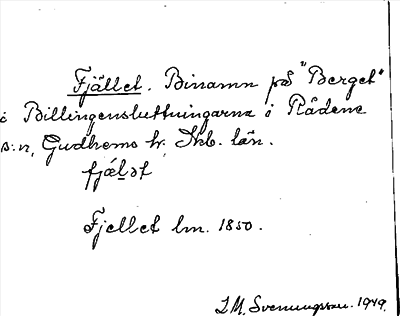 Fjället. Binamn på "Berget"
i Billingensluttningarna i Rådene
s:n, Gudhems hr, Skb. län.
fjäḷət
Fjellet lm. 1850.
I. M. Svenungsson. 1949.